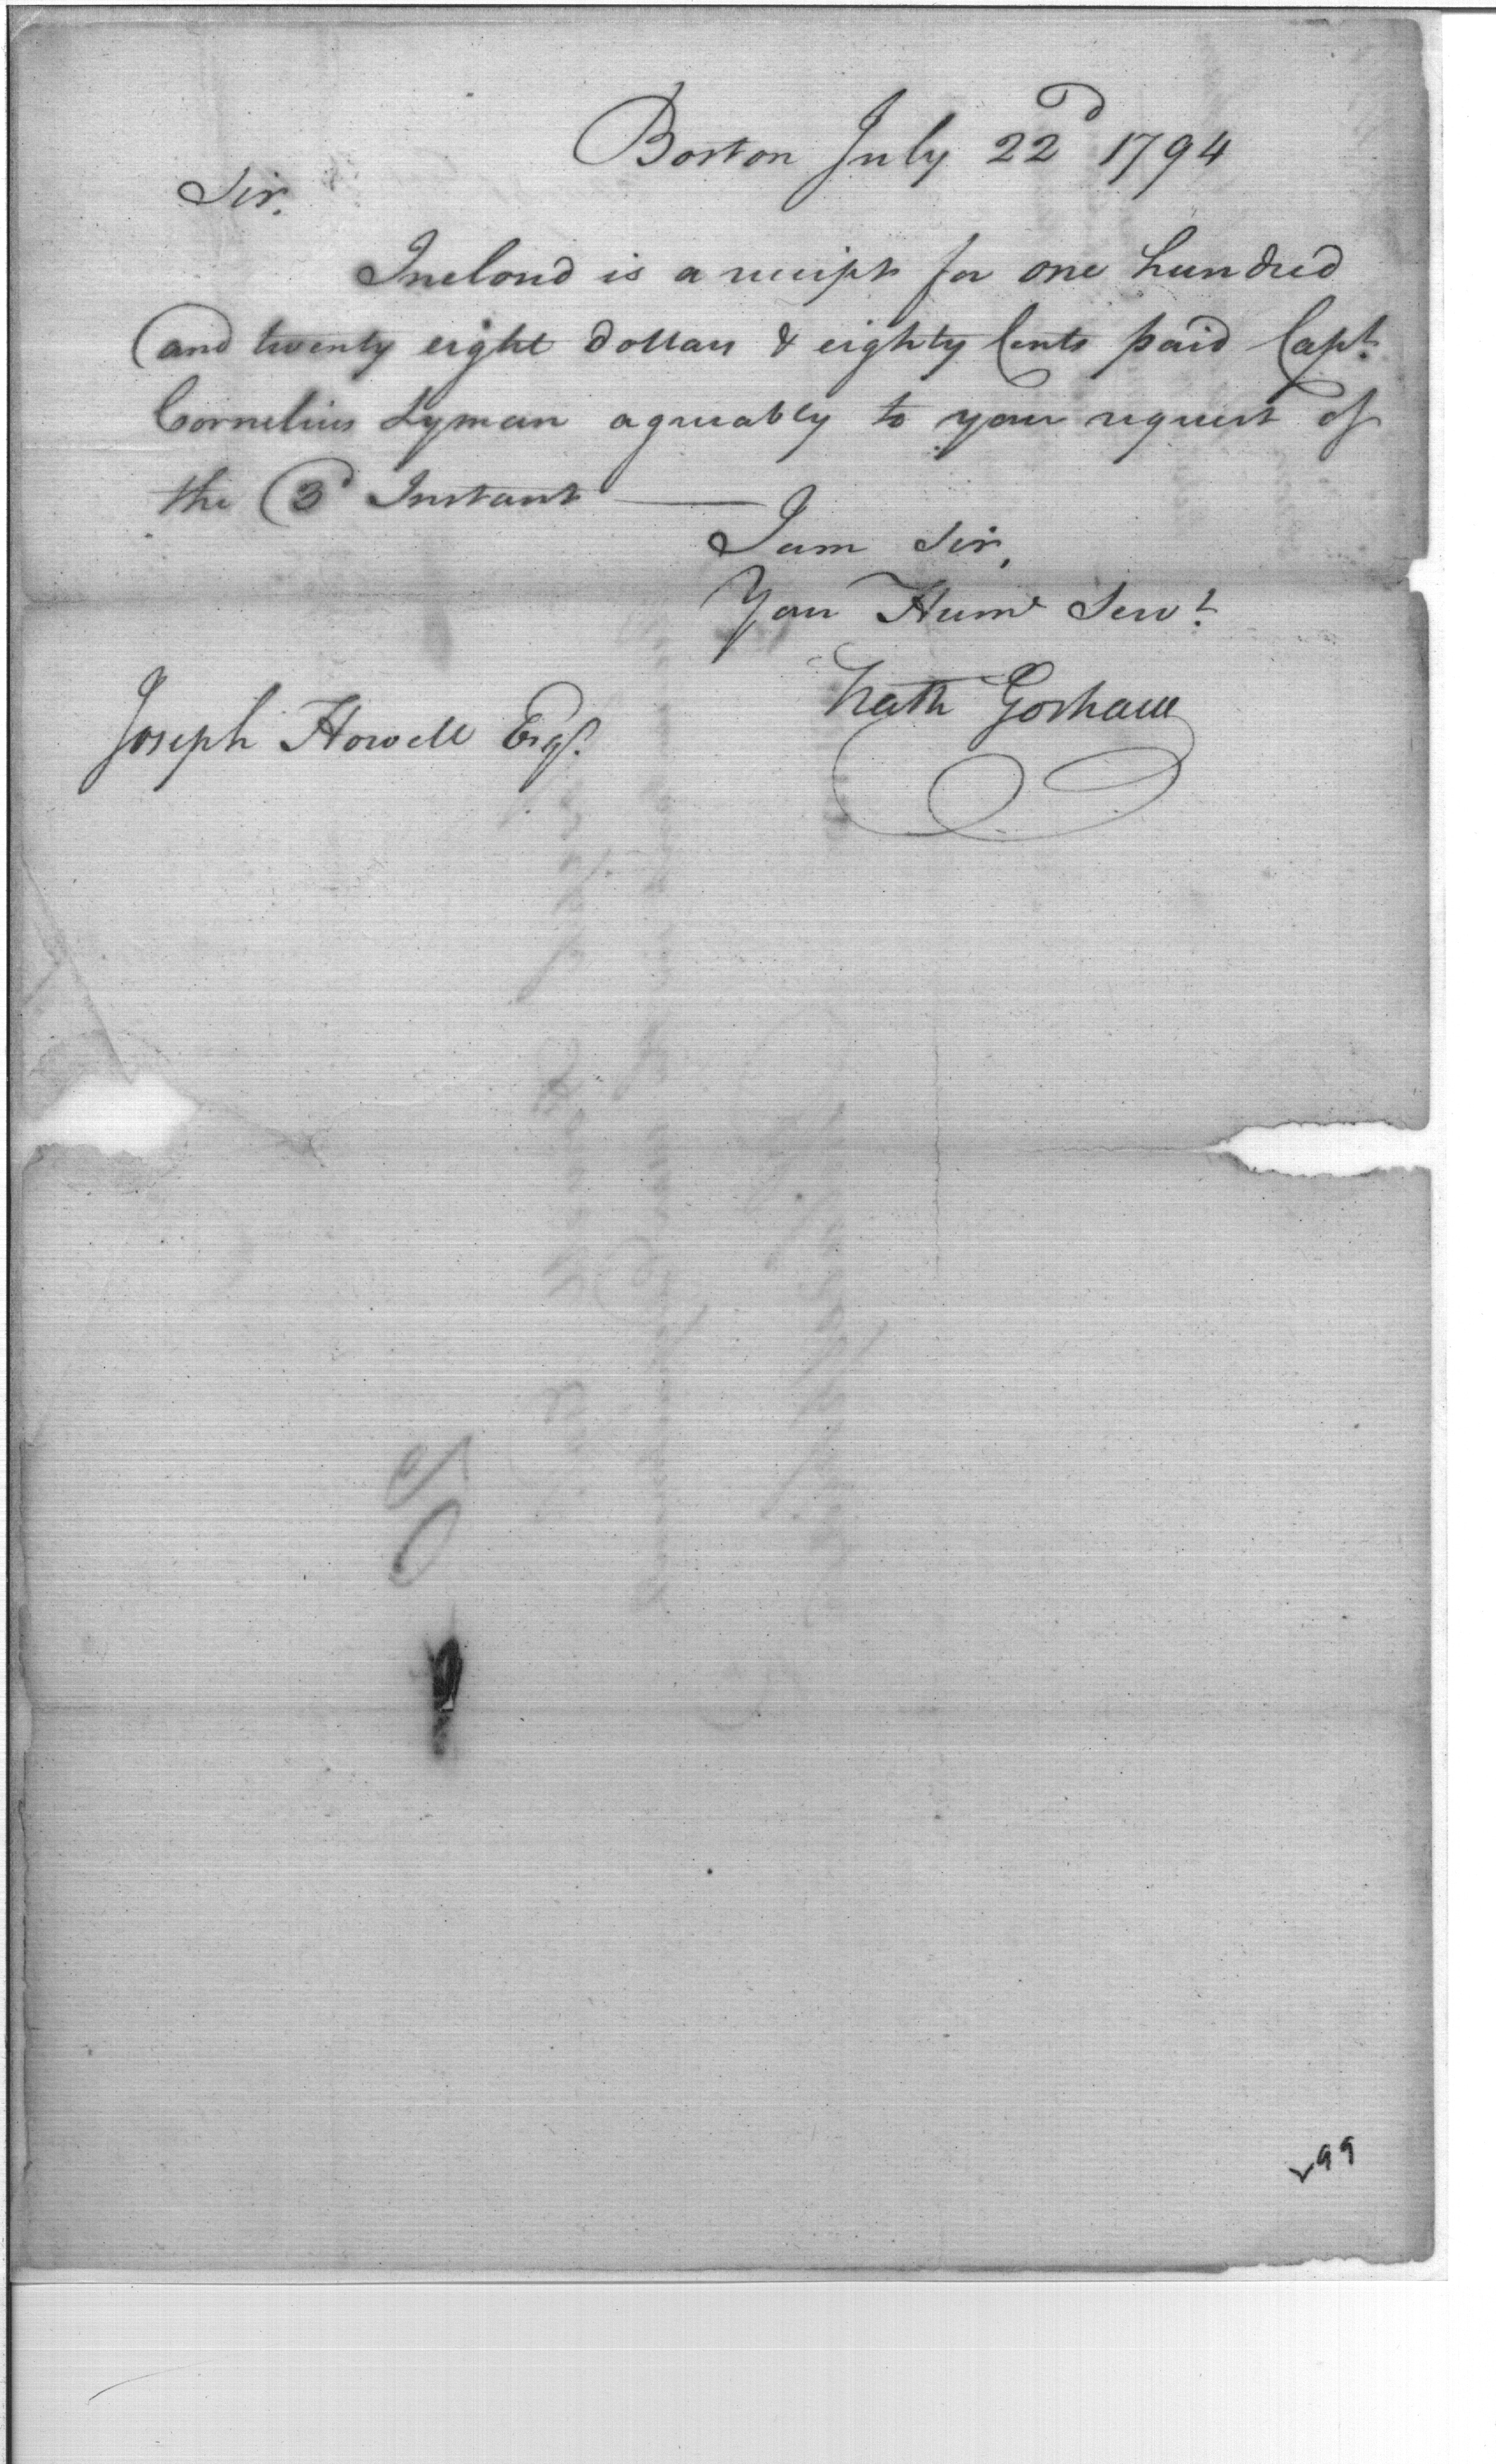 Boston July 22d 1794
Sir.
Inclosd is a receipt for one hundred
and twenty eight dollars & eighty Cents paid Capt.
Cornelius Lyman agreeably to your request of
the 3d Instant
I am Sir,
Your Humle Servt.
Nath Gorham
Joseph Howell Esqr.
99